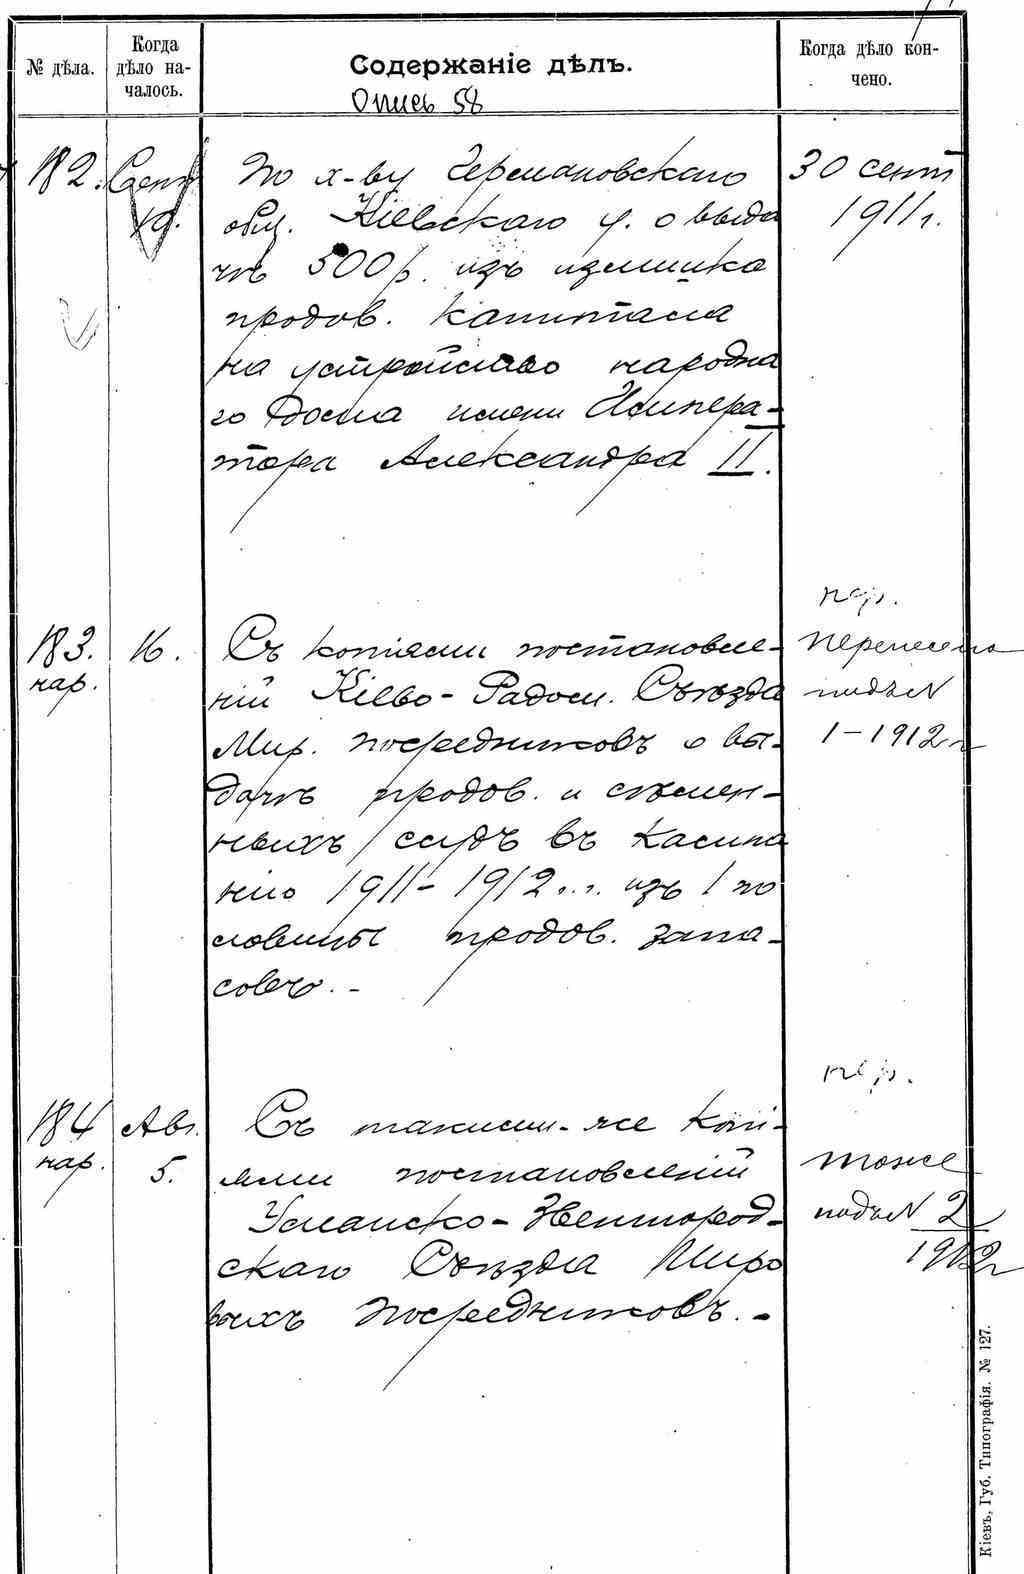 № дѣла.
Когда
дѣло на-
чалось.
Содержаніе дѣлъ.
Опись 58
Когда дѣло кон-
чено.
182. Сент
19.
По х-ву Германовскаго
общ. Кіевскаго у. о выда
чѣ 500 р. изъ излишка
продов. капитала
на устройство народна
го дома имени Импера-
тора Александра II.
30 сент
1911 г.
183.
нар.
16.
Съ копіями постановле-
ній Кіево-Радом. Съѣзда
Мир. посредниковъ о вы-
дачѣ продов. и сѣмен-
ныхъ ссудъ въ кампа
нію 1911-1912 г.г. изъ 1 по
ловины продов. запа-
совъ. -
нар.
перенесено
подъ N
1-1912 г
184
нар.
Авг.
5.
Съ такими-же копі-
ями постановленій
Уманско-Звенигород-
скаго Съѣзда Миро
выхъ Посредниковъ. -
нар.
тоже
подъ N 2
1912 г
Кіевъ, Губ. Типографія. № 127.